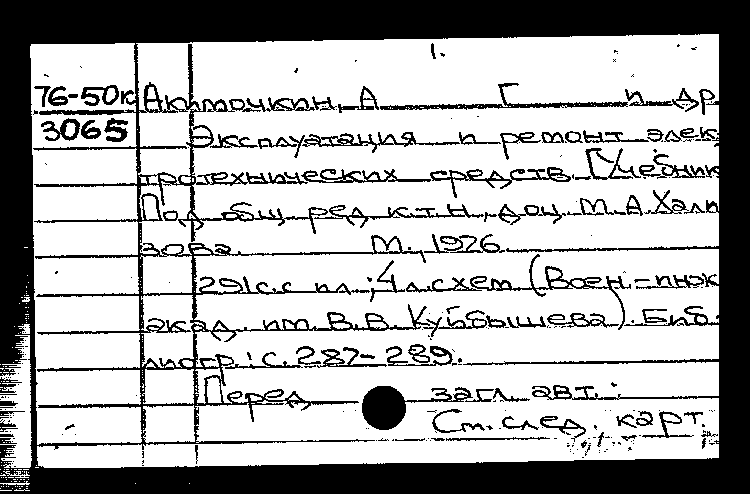 1.
76-50к Акимочкин, А Г и др
3065 Эксплуатация и ремонт элек-
тротехнических средств. [Учебник
Под общ. ред. к.т.н., доц. М. А. Хали-
зова. М., 1976.
291 с. с ил.; 4 л. схем (Воен.-инж.
акад. им. В. В. Куйбышева). Биб-
лиогр.: с. 287-289.
Перед загл. авт.:
См. след. карт.